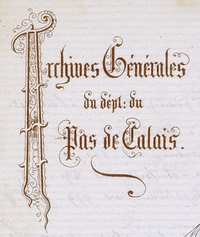 Archives Générales
du dépt: du
Pas de Calais.